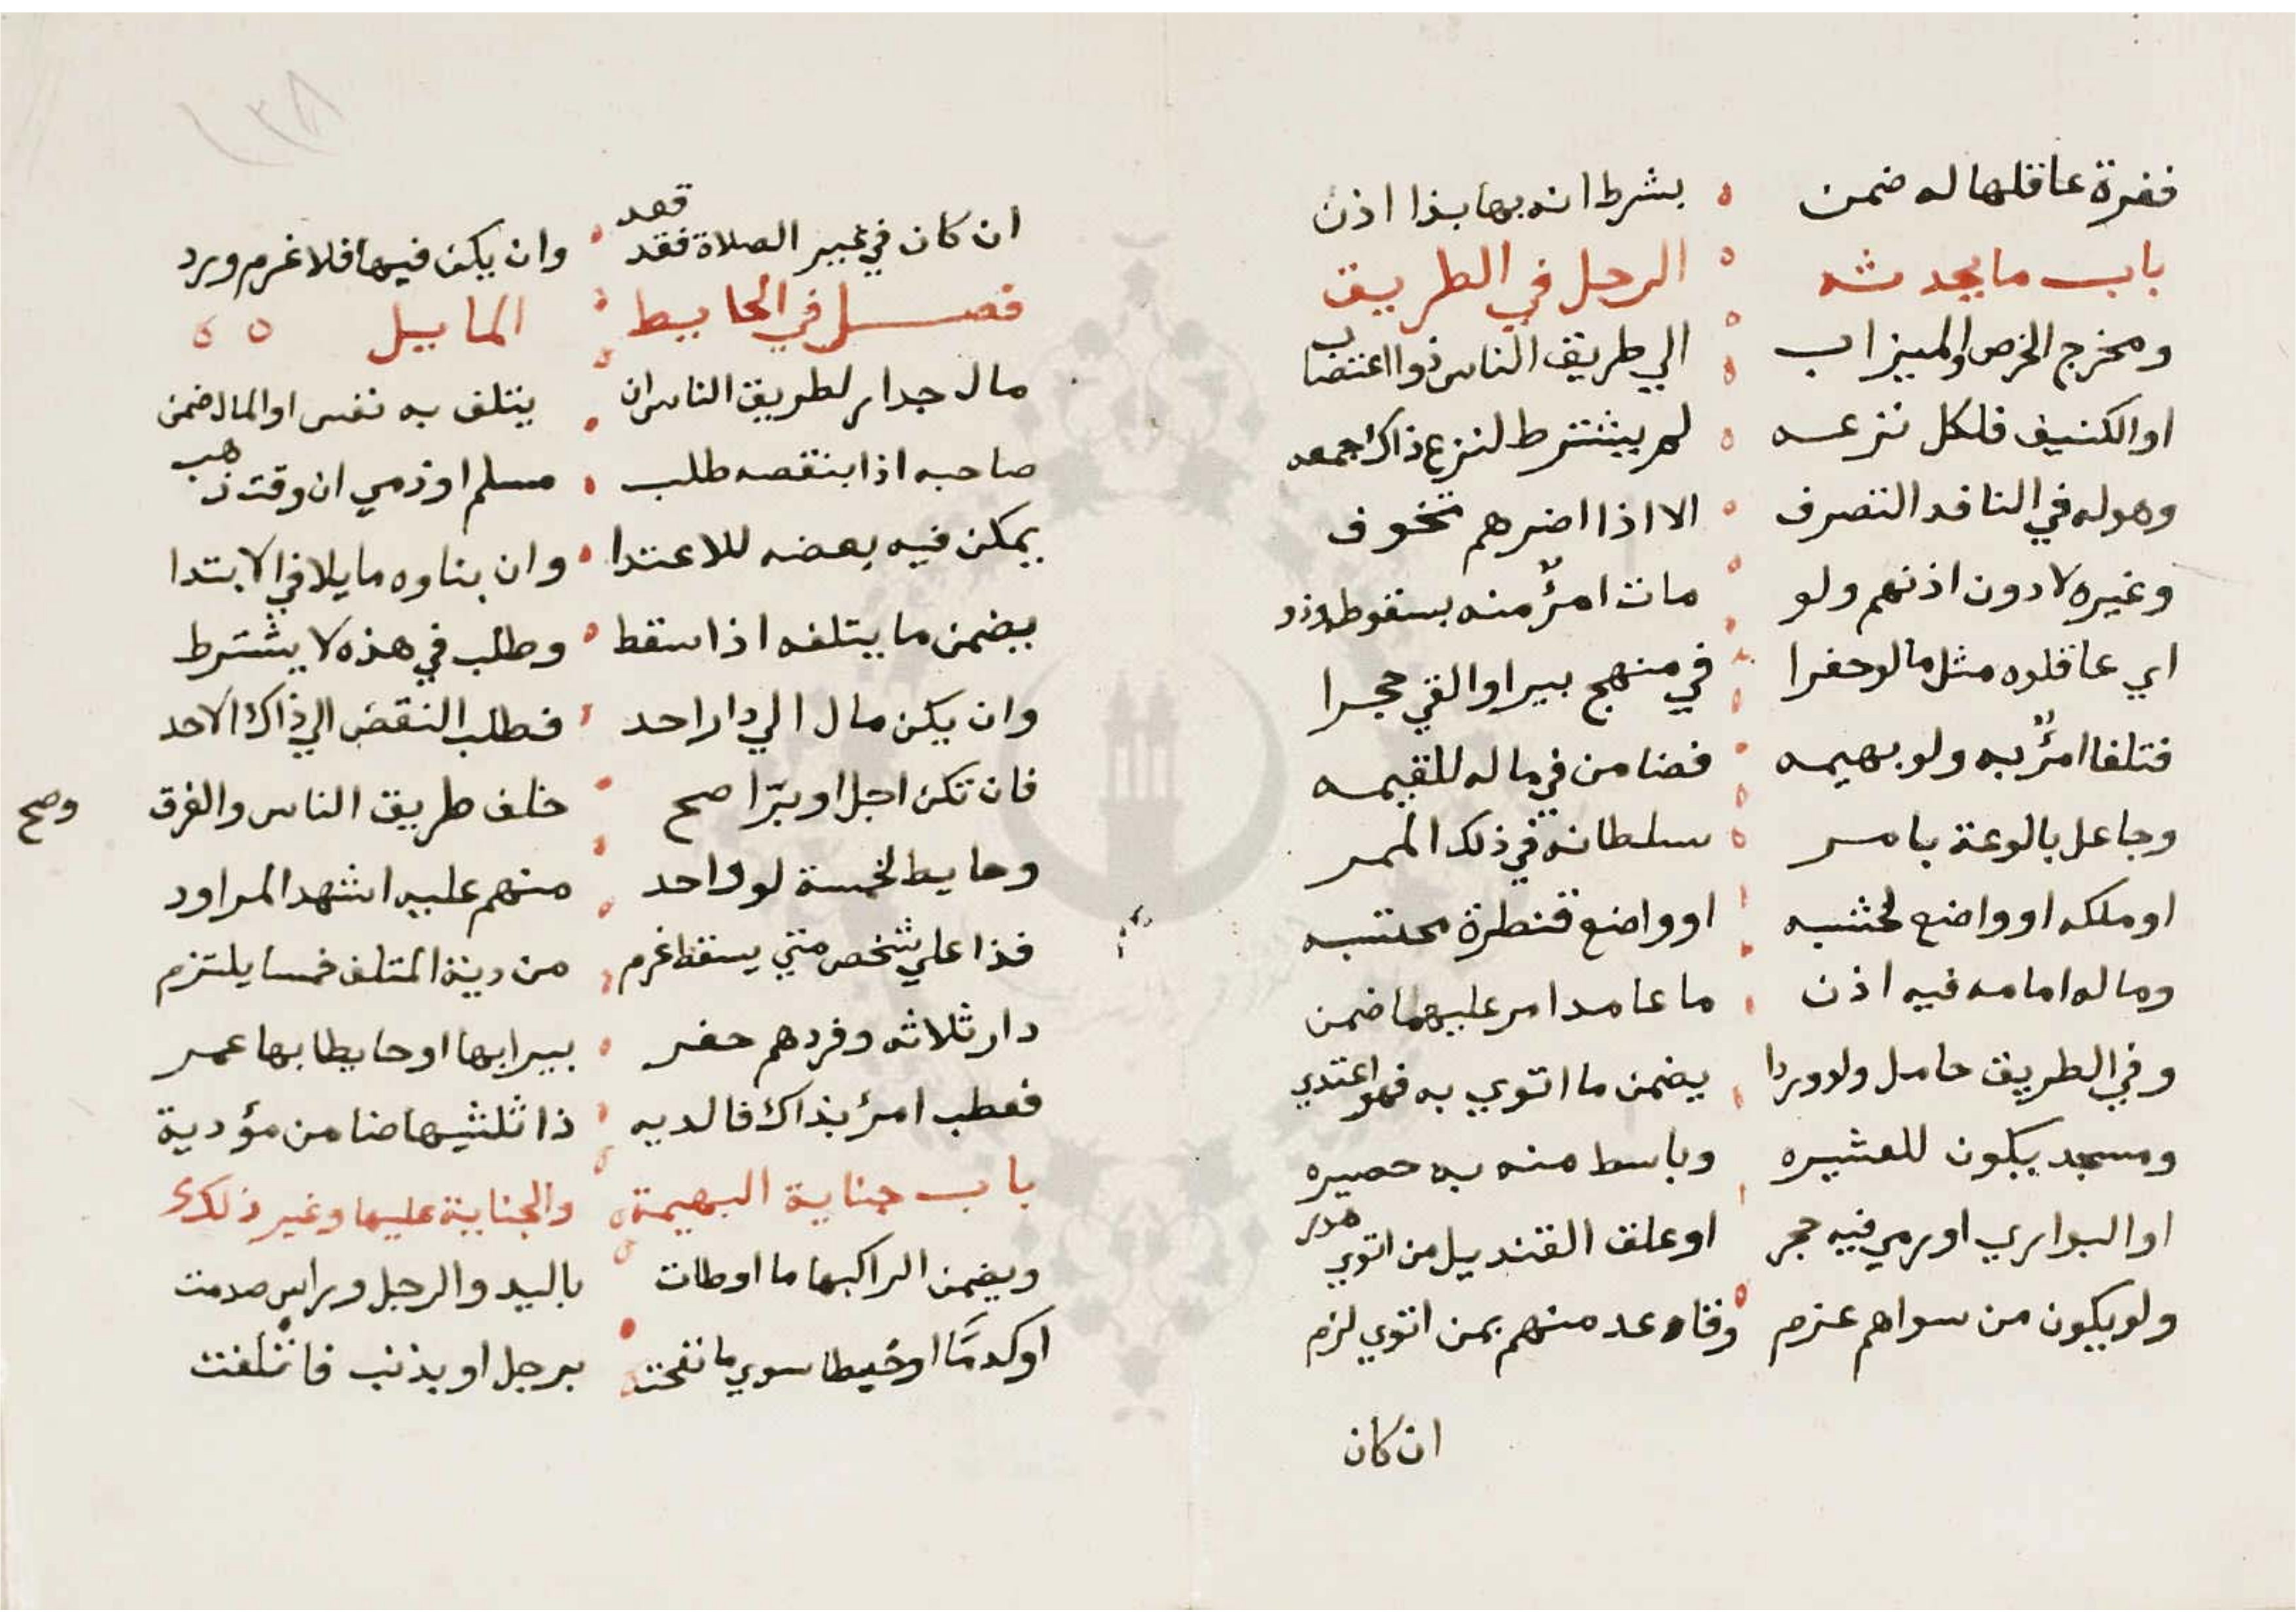 فغرة عاقلها له ضمن بشرط انه بها بذا اذن
باب ما يحدثه الرجل في الطريق
ومخرج الخرص والميزاب الي طريق الناس ذوا اغتصاب
او الكنيف فلكل نزعه لم يشترط لنزع ذاك اجمعه
وهو له في النافد التصرف الا اذا اضرهم تخوف
وغيره لا دون اذنهم ولو مات امرؤ منه بسقوط
اي عاقلوه مثل ما لو حفرا في منهج بيرا والقي حجرا
فتلفا امرؤ به ولو بهيمه فضامن في ماله للقيمه
وجاعل بالوعة بامر سلطانه في ذلك الممر
او ملكه او واضع لخشبه او واضع قنطرة محتسبه
وماله امامه فيه اذن ما عامدا مر عليهما ضمن
وفي الطريق حامل ولا وردا يضمن ما اتوي به فهو اعتدي
ومسجد يكون للعشيره وباسط منه به حصيره
او البواري او رمي فيه حجر او علق القنديل من اتوي هدر
ولو يكون من سواهم عزم وقاعد منهم بمن اتوي لزم
ان كان
ان كان في غير الصلاة فقد قعد وان يكن فيها فلا غرم ورد
فصل في الحايط المايل
مال جدار لطريق الناس ان يتلف به نفس او المال ضمن
صاحبه اذا بنقضه طلب مسلم او ذمي ان وقت ذهب
يمكن فيه بعضه للاعتدا وان بناوه مايلا في الابتدا
يضمن ما يتلفه اذا سقط وطلب في هذه لا يشترط
وان يكن مال الي دار احد فطلب النقض الي ذاك الاحد
فان تكن اجل او برّا صح خلف طريق الناس والفرق وضح
وحايط لخمسة لو واحد منهم عليه اشهد المراود
فذا علي شخص متي يسقط غرم من دية المتلف خمسا يلتزم
دار ثلاثه وفردهم حفر بيرا بها او حايطا بها عمر
فعطب امرؤ بذاك فا لديه ذا ثلثيها ضامن مؤدية
باب جناية البهيمة والجناية عليها وغير ذلك
ويضمن الراكبها ما اوطات باليد والرجل وراس صدمت
او كدمًا او خبطا سوي ما نفحت برجل او بذنب فاتلفت